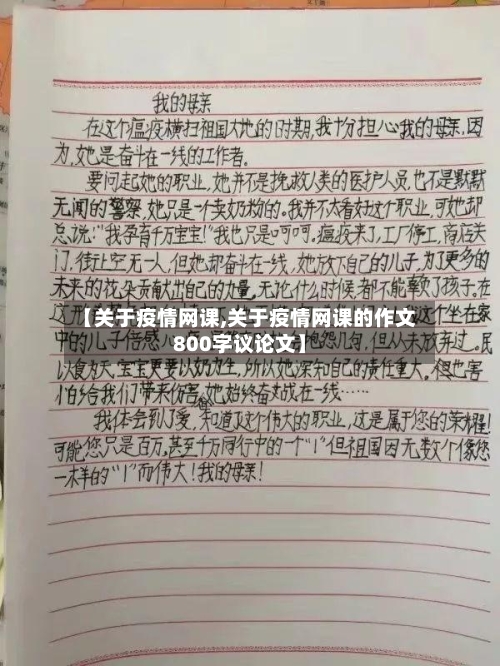 我的母亲
在这个瘟疫横扫祖国大地的时期,我十分担心我的母亲,因
为,她是奋斗在一线的工作者。
要问起她的职业,她并不是挽救人类的医护人员,也不是默默
无闻的警察,她只是一个卖奶粉的。我并不太看好这个职业,可她却
总说:“我孕育千万宝宝!”我也只是呵呵。瘟疫来了,工厂停工,商店关
门,街上空无一人,但她却奋斗在一线,她放下自己的儿子,为了更多的
未来的花朵贡献出自己的力量,无论什么时候都不能辜负了孩子。在
这
【关于疫情网课,关于疫情网课的作文
这个坐在家
中的儿子倍感
800字议论文】
抱怨几句,但从未放弃过。民
以食为天,宝宝更要以奶为生,所以她深知自己的责任重大。但也害
怕给我们带来伤害,她始终奋战在一线……
我体会到了爱,和道义这个伟大的职业,这是属于您的荣耀!
可能您只是百万,甚至千万同行中的一个“1”但祖国因无数个像您
一样的“1”而伟大!我的母亲!